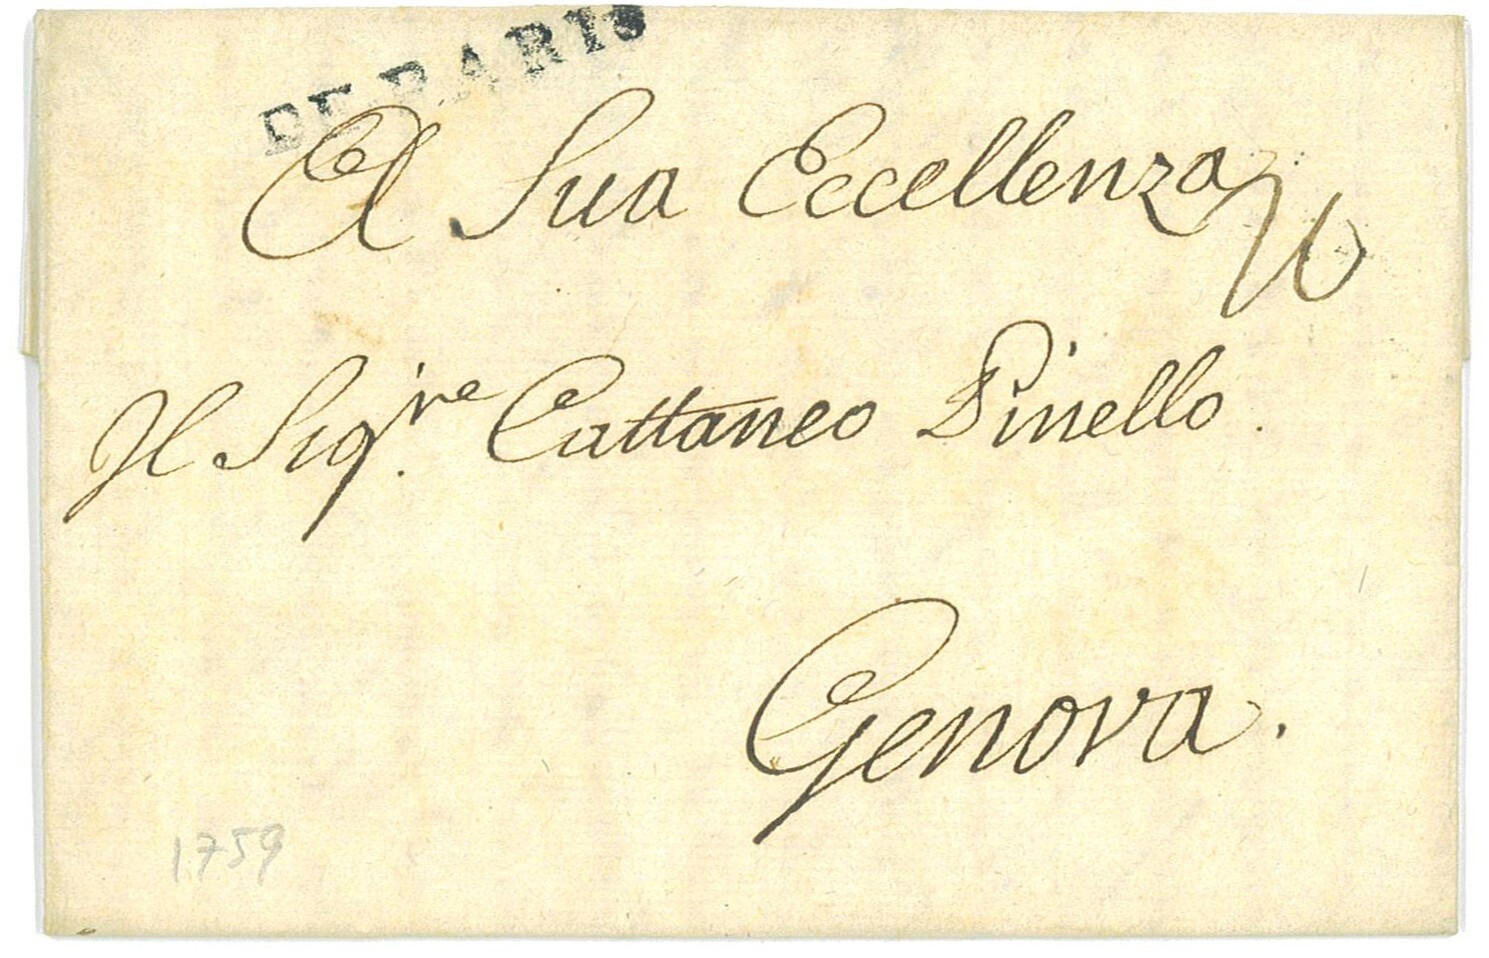 DE PARIS
A Sua Eccellenza
Il Sig.re Cattaneo Pinello.
Genova.
1759